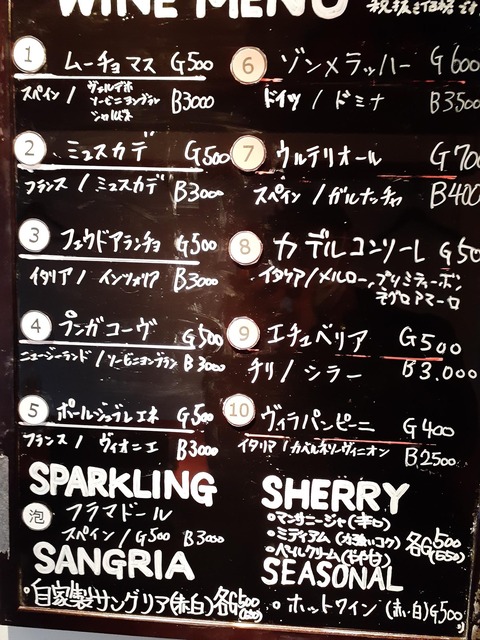 WINE MENU 税抜き価格です
1 ムーチョマス G500
スペイン / ヴェルデホ ソービニヨンブラン シャルドネ B3000
2 ミュスカデ G500
フランス / ミュスカデ B3000
3 フェウドアランチョ G500
イタリア / インツォリア B3000
4 プンガコーヴ G500
ニュージーランド / ソービニヨンブラン B3000
5 ポールジュブレエネ G500
フランス / ヴィオニエ B3000
6 ゾンメラッハー G600
ドイツ / ドミナ B3500
7 ウルテリオール G700
スペイン / ガルナッチャ B400
8 カデルコンソーレ G50
イタリア / メルロー、プリミティーボ、
ネグロアマーロ
9 エチュベリア G500
チリ / シラー B3.000
10 ヴィラパンピーニ G400
イタリア / カベルネソーヴィニオン B2500
SPARKLING
泡 フラマドール
スペイン / G500 B3000
SANGRIA
・自家製サングリア(赤白) 各G500
SHERRY
・マンサニージャ(辛口)
・ミディアム(力強いコク) 各G500
・ペイルクリーム(やや甘口) (550)
SEASONAL
・ホットワイン(赤い白) G500